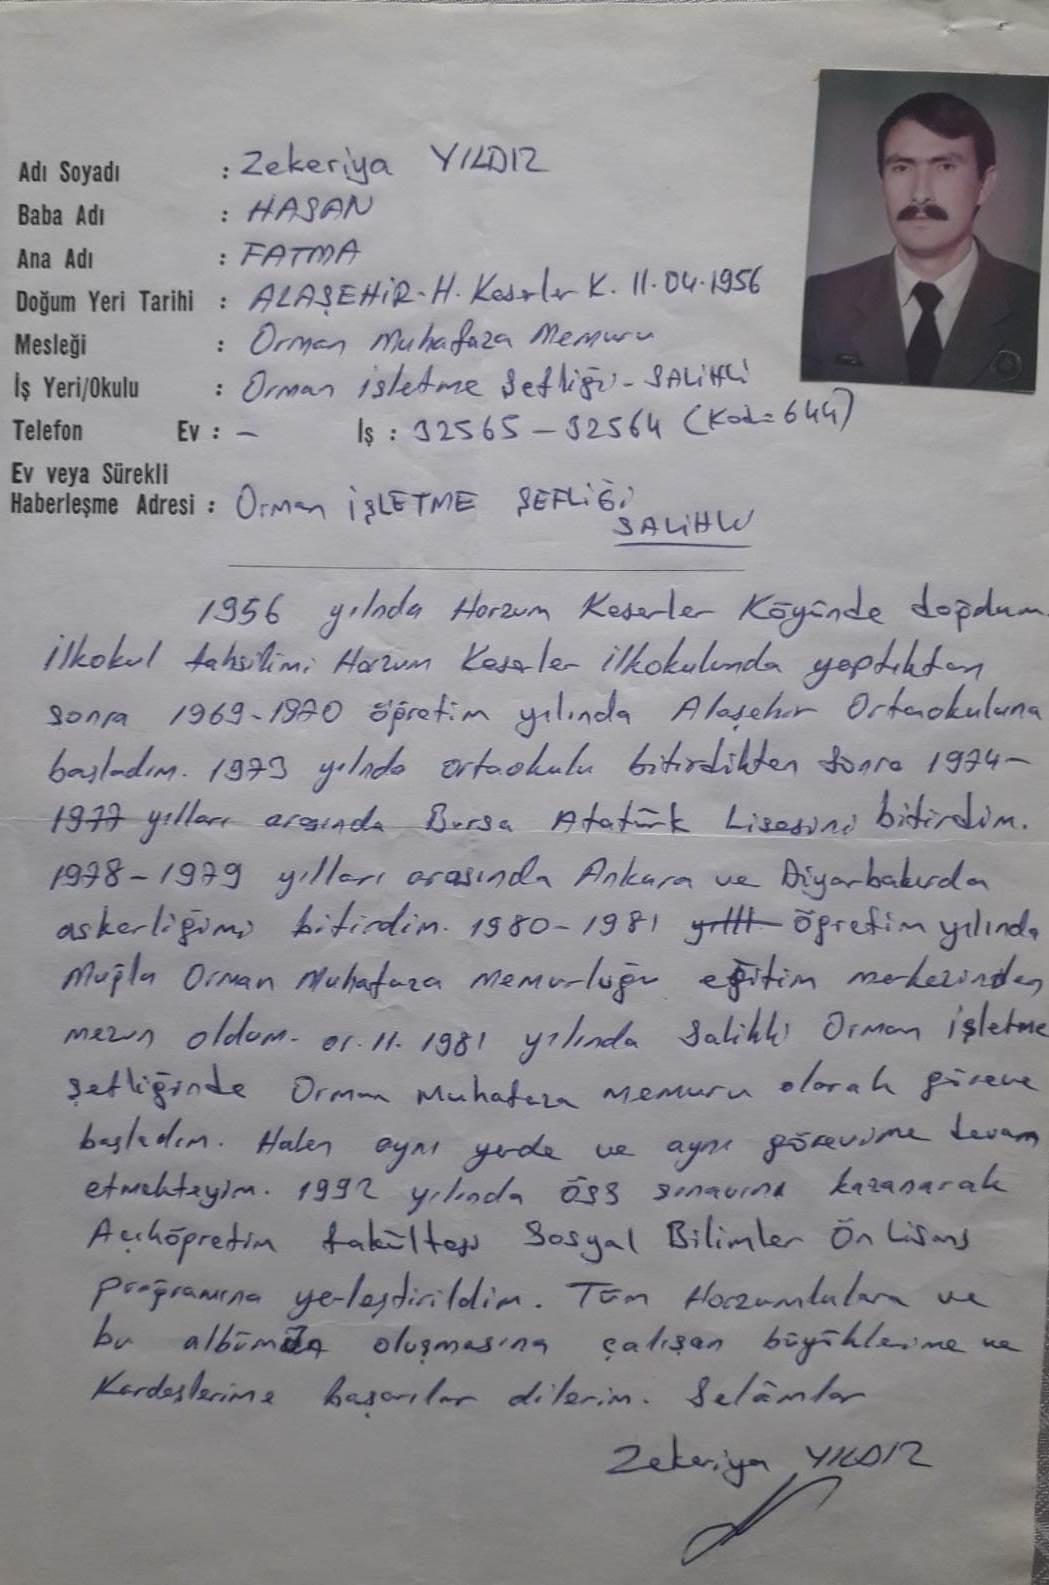 Adı Soyadı : Zekeriya YILDIZ
Baba Adı : HASAN
Ana Adı : FATMA
Doğum Yeri Tarihi : ALAŞEHİR-H. Keserler K. 11.04.1956
Mesleği : Orman Muhafaza Memuru
İş Yeri/Okulu : Orman işletme Şefliği-SALİHLİ
Telefon Ev : - İş : 32565-32564 (Kod=644)
Ev veya Sürekli
Haberleşme Adresi : Orman İŞLETME ŞEFLİĞİ
SALİHLİ
1956 yılnda Horzum Keserler Köyünde doğdum.
İlkokul tahsilimi Horzum Keserler ilkokulunda yaptıktan
sonra 1969-1970 öğretim yılında Alaşehir Ortaokuluna
başladım. 1973 yılnda ortaokulu bitirdikten sonra 1974-
1977 yılları arasında Bursa Atatürk Lisesini bitirdim.
1978-1979 yılları arasında Ankara ve Diyarbakırda
askerliğimi bitirdim. 1980-1981 öğretim yılında
Muğla Orman Muhafaza Memurluğu eğitim merkezinden
mezun oldum. 01.11.1981 yılında Salihli Orman işletme
şefliğinde Orman Muhafaza Memuru olarak göreve
başladım. Halen aynı yerde ve aynı görevime devam
etmekteyim. 1992 yılında ÖSS sınavını kazanarak
Açıköğretim fakültesi Sosyal Bilimler Ön Lisans
programına yerleştirildim. Tüm Horzumlulara ve
bu albümün oluşmasına çalışan büyüklerime ve
Kardeşlerime başarılar dilerim. Selâmlar
Zekeriya YILDIZ